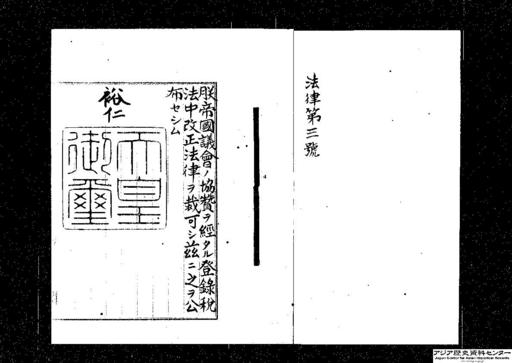 法律第三號
朕帝國議會ノ協贊ヲ經タル登錄稅
法中改正法律ヲ裁可シ茲ニ之ヲ公
布セシム
裕仁
天皇
御璽
アジア歴史資料センター
Japan Center for Asian Historical Records